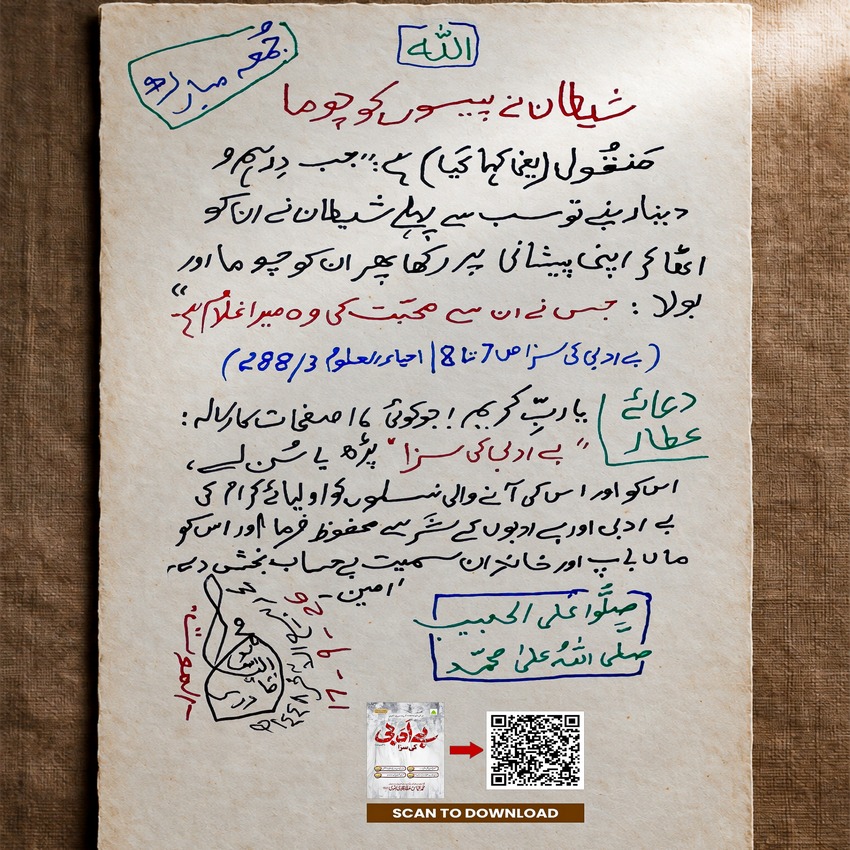 اللّٰه
جُمُعہ مبارک
شیطان نے پیسوں کو چوما
مَنقُول (یعنی کہا گیا) ہے: "جب دِرہم و
دینار بنے تو سب سے پہلے شیطان نے ان کو
اٹھا کر اپنی پیشانی پر رکھا پھر ان کو چوما اور
بولا: جس نے ان سے محبّت کی وہ میرا غلام ہے۔"
(بے ادبی کی سزا ص 7 تا 8 | احیاء العلوم 3/288)
دعائے
عطار
یا ربِّ کریم! جو کوئی 16 صفحات کا رسالہ:
"بے ادبی کی سزا" پڑھ یا سُن لے،
اس کو اور اس کی آنے والی نسلوں کو اولیائے کرام کی
بے ادبی اور بے ادبوں کے شَر سے محفوظ فرما اور اس کو
ماں باپ اور خاندان سمیت بے حساب بخش دے۔
امین۔
صَلُّوا عَلَی الحبیب
صلَّی اللّٰہُ علیٰ محمّد
بے ادبی
کی سزا
SCAN TO DOWNLOAD